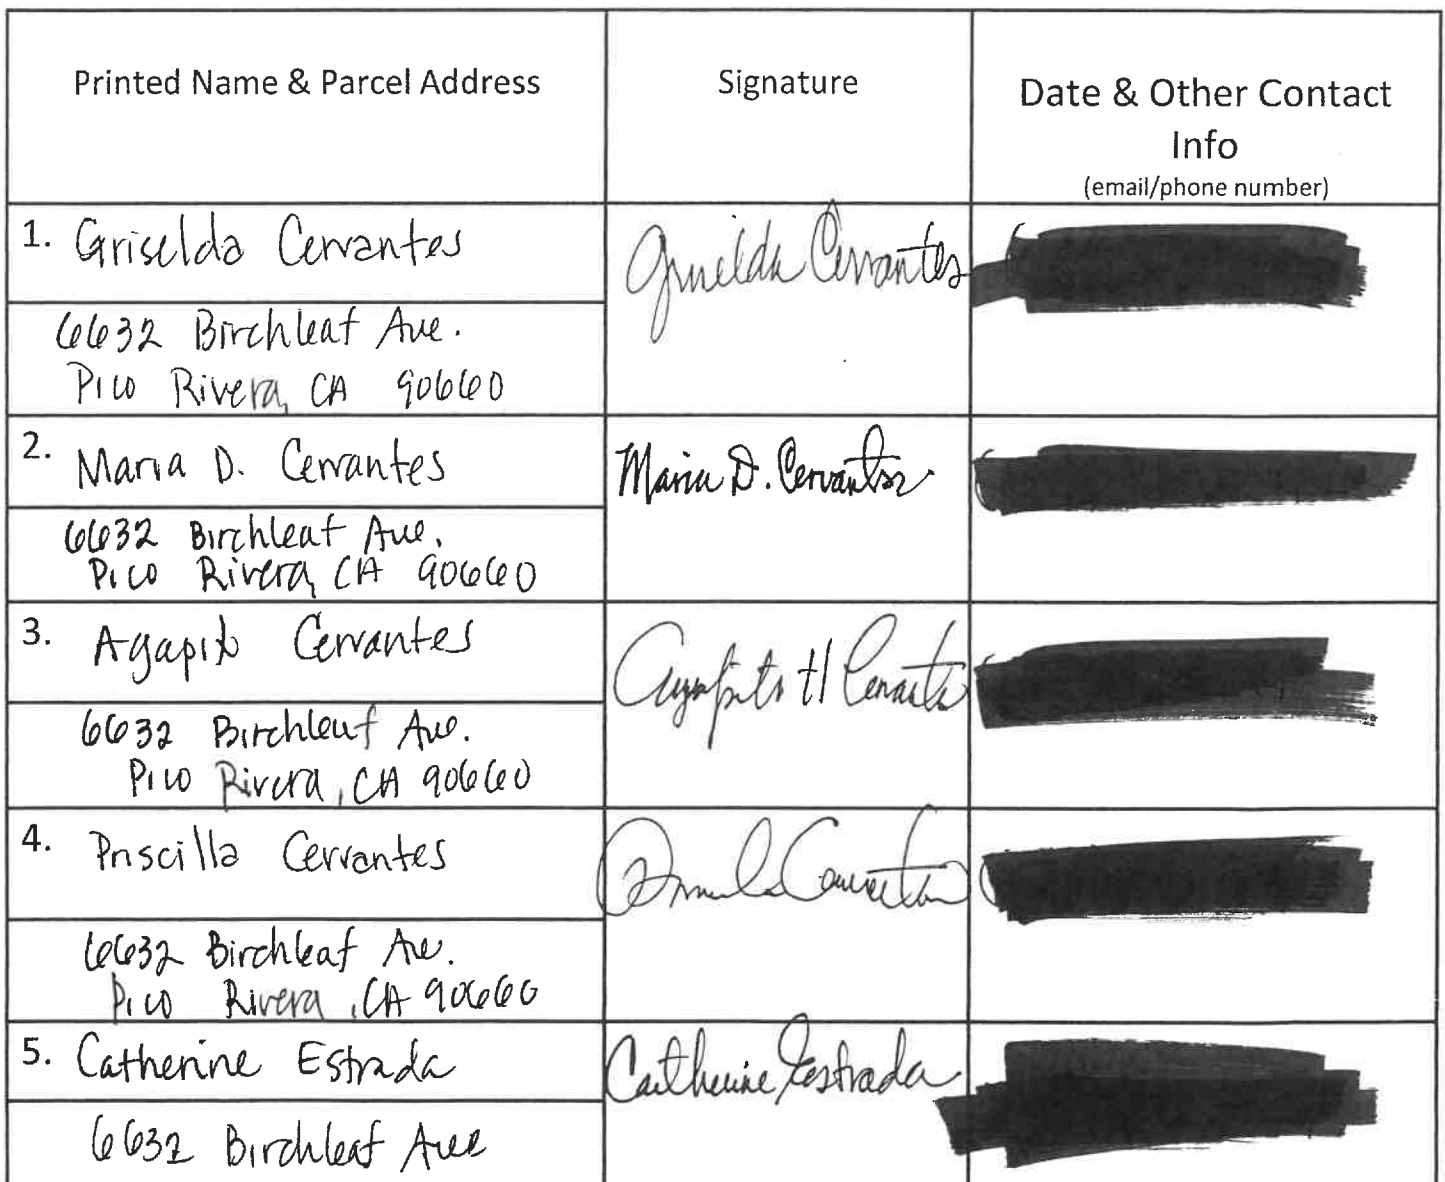 Printed Name & Parcel Address
Signature
Date & Other Contact
Info
(email/phone number)
1. Griselda Cervantes
Griselda Cervantes
6632 Birchleaf Ave.
Pico Rivera, CA 90660
2. Maria D. Cervantes
Maria D. Cervantes
6632 Birchleaf Ave.
Pico Rivera, CA 90660
3. Agapito Cervantes
Agapito H Cervantes
6632 Birchleaf Ave.
Pico Rivera, CA 90660
4. Priscilla Cervantes
Priscilla Cervantes
6632 Birchleaf Ave.
Pico Rivera, CA 90660
5. Catherine Estrada
Catherine Estrada
6632 Birchleaf Ave